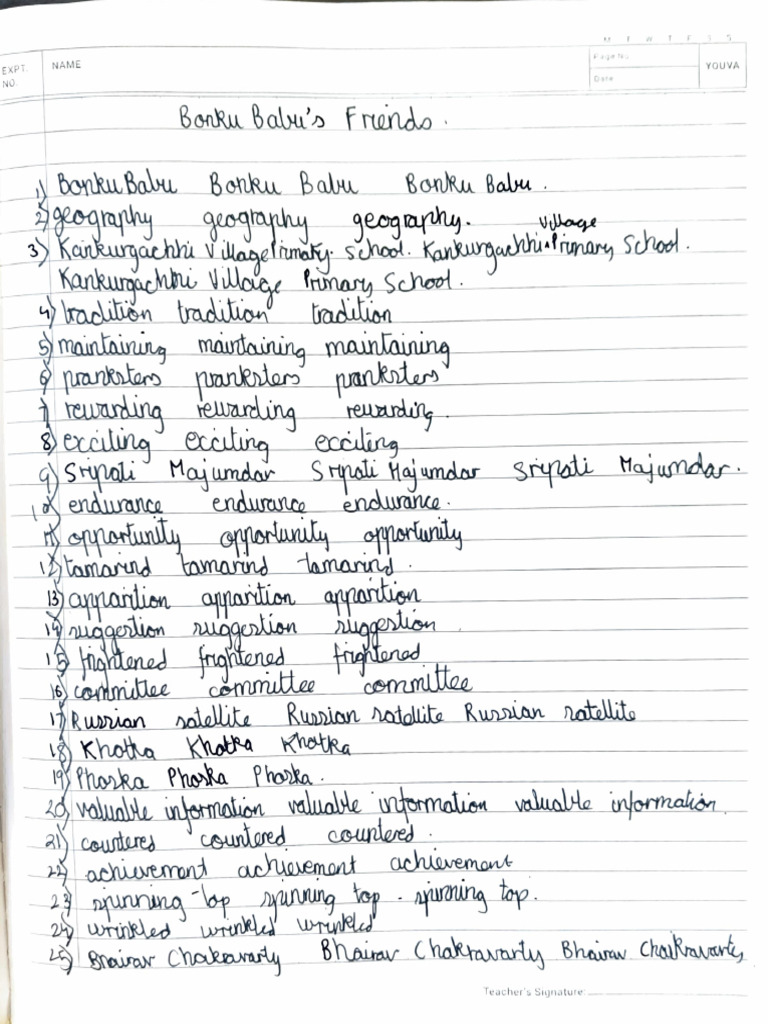 M T W T F S S
EXPT. NO. NAME Page No. YOUVA
Date
Bonku Babu's Friends.
1) Bonku Babu Bonku Babu Bonku Babu.
2) geography geography geography. Village
3) Kankurgachhi Village Primary. School. Kankurgachhi Primary School.
Kankurgachhi Village Primary School.
4) tradition tradition tradition
5) maintaining maintaining maintaining
6) pranksters pranksters pranksters
7) rewarding rewarding rewarding.
8) exciting exciting exciting
9) Sripati Majumdar Sripati Majumdar Sripati Majumdar.
10) endurance endurance endurance.
11) opportunity opportunity opportunity
12) tamarind tamarind tamarind.
13) apparition apparition apparition
14) suggestion suggestion suggestion
15) frightened frightened frightened
16) committee committee committee
17) Russian satellite Russian satellite Russian satellite
18) Khotka Khotka Khotka
19) Phoska Phoska Phoska.
20) valuable information valuable information valuable information.
21) countered countered countered.
22) achievement achievement achievement
23) spinning top spinning top. spinning top.
24) wrinkled wrinkled wrinkled
25) Bhairav Chakravarty Bhairav Chakravarty Bhairav Chakravarty
Teacher's Signature: